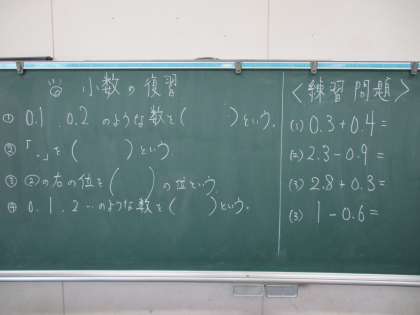 小数の復習
① 0.1、0.2のような数を(　　)という。
②「.」を(　　)という。
③ ②の右の位を(　　)の位という。
④ 0、1、2…のような数を(　　)という。
〈練習問題〉
(1) 0.3+0.4=
(2) 2.3-0.9=
(3) 2.8+0.3=
(3) 1-0.6=